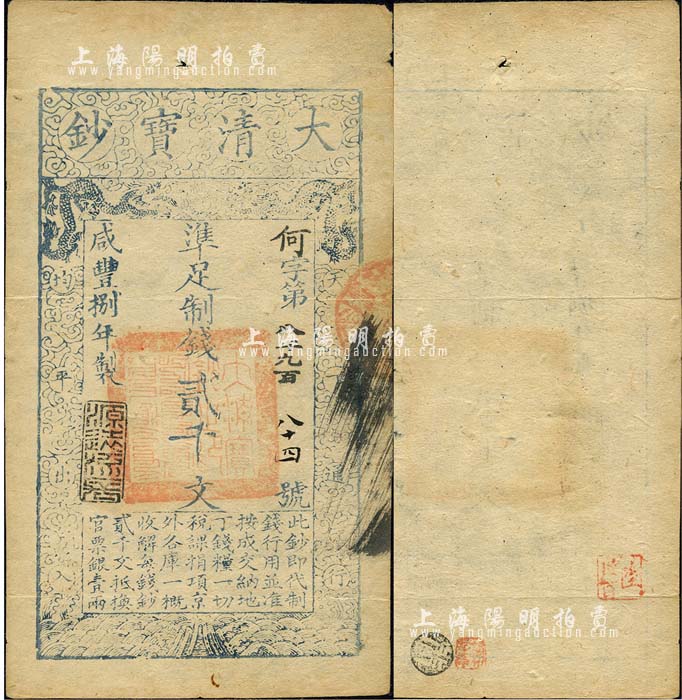 大清寶鈔
何字第
九百八十四號
準足制錢貳千文
咸豐捌年製
天下通行
均平出入
此鈔即代制
錢行用並准
按成交納地
丁錢糧一切
稅課捐項京
外各庫一概
收解每錢鈔
貳千文抵換
官票銀壹兩
上海陽明拍賣
www.yangmingauction.com
上海陽明拍賣
www.yangmingauction.com
上海陽明拍賣
www.yangmingauction.com
上海陽明拍賣
www.yangmingauction.com